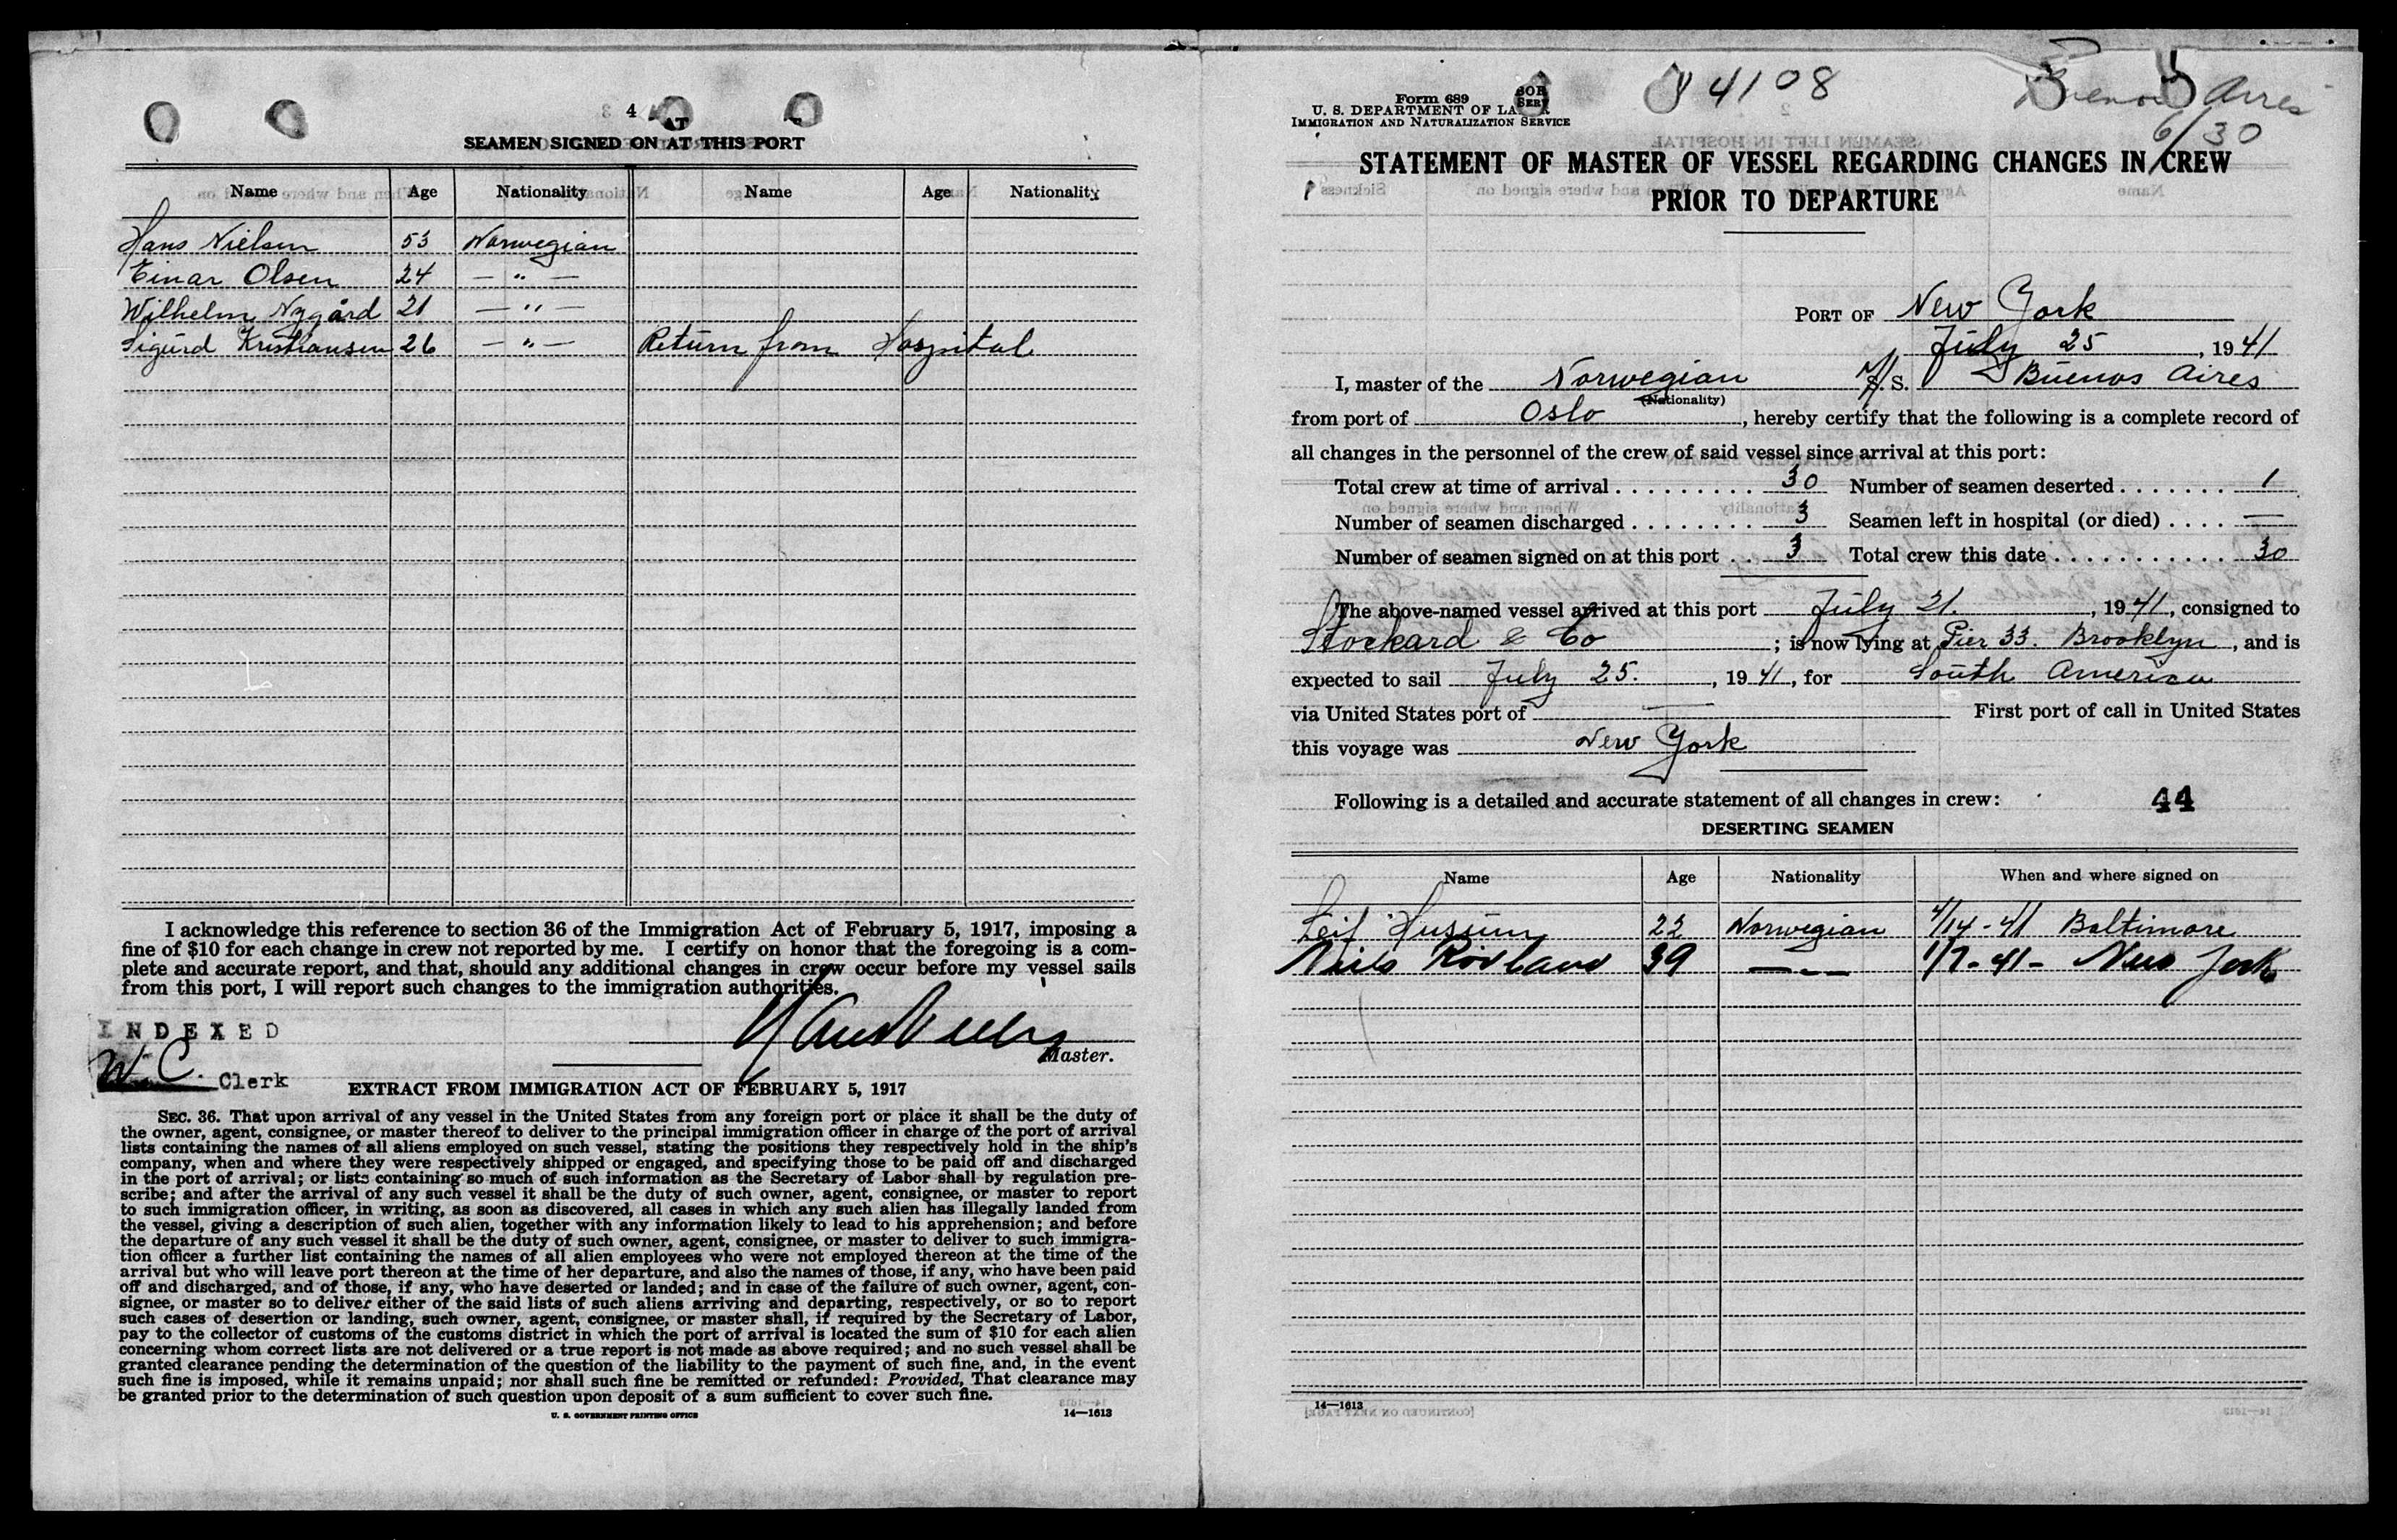 4
SEAMEN SIGNED ON AT THIS PORT
Name Age Nationality Name Age Nationality
Hans Nielsen 53 Norwegian
Einar Olsen 24 — " —
Wilhelm Nygård 21 — " —
Sigurd Kristiansen 26 — " — Return from Hospital
I acknowledge this reference to section 36 of the Immigration Act of February 5, 1917, imposing a
fine of $10 for each change in crew not reported by me. I certify on honor that the foregoing is a com-
plete and accurate report, and that, should any additional changes in crew occur before my vessel sails
from this port, I will report such changes to the immigration authorities.
INDEXED
Master.
W. C. Clerk
EXTRACT FROM IMMIGRATION ACT OF FEBRUARY 5, 1917
SEC. 36. That upon arrival of any vessel in the United States from any foreign port or place it shall be the duty of
the owner, agent, consignee, or master thereof to deliver to the principal immigration officer in charge of the port of arrival
lists containing the names of all aliens employed on such vessel, stating the positions they respectively hold in the ship's
company, when and where they were respectively shipped or engaged, and specifying those to be paid off and discharged
in the port of arrival; or lists containing so much of such information as the Secretary of Labor shall by regulation pre-
scribe; and after the arrival of any such vessel it shall be the duty of such owner, agent, consignee, or master to report
to such immigration officer, in writing, as soon as discovered, all cases in which any such alien has illegally landed from
the vessel, giving a description of such alien, together with any information likely to lead to his apprehension; and before
the departure of any such vessel it shall be the duty of such owner, agent, consignee, or master to deliver to such immigra-
tion officer a further list containing the names of all alien employees who were not employed thereon at the time of the
arrival but who will leave port thereon at the time of her departure, and also the names of those, if any, who have been paid
off and discharged, and of those, if any, who have deserted or landed; and in case of the failure of such owner, agent, con-
signee, or master so to deliver either of the said lists of such aliens arriving and departing, respectively, or so to report
such cases of desertion or landing, such owner, agent, consignee, or master shall, if required by the Secretary of Labor,
pay to the collector of customs of the customs district in which the port of arrival is located the sum of $10 for each alien
concerning whom correct lists are not delivered or a true report is not made as above required; and no such vessel shall be
granted clearance pending the determination of the question of the liability to the payment of such fine, and, in the event
such fine is imposed, while it remains unpaid; nor shall such fine be remitted or refunded: Provided, That clearance may
be granted prior to the determination of such question upon deposit of a sum sufficient to cover such fine.
U. S. GOVERNMENT PRINTING OFFICE 14—1613
Form 689
U. S. DEPARTMENT OF LABOR
IMMIGRATION AND NATURALIZATION SERVICE
4108
6/30
STATEMENT OF MASTER OF VESSEL REGARDING CHANGES IN CREW
PRIOR TO DEPARTURE
PORT OF New York
July 25, 1941
I, master of the Norwegian M/S. Buenos Aires
(Nationality)
from port of Oslo, hereby certify that the following is a complete record of
all changes in the personnel of the crew of said vessel since arrival at this port:
Total crew at time of arrival . . . . . . . . . 30 Number of seamen deserted . . . . . . . 1
Number of seamen discharged . . . . . . . . 3 Seamen left in hospital (or died) . . . . —
Number of seamen signed on at this port . . 3 Total crew this date . . . . . . . . . . . . 30
The above-named vessel arrived at this port July 21., 1941, consigned to
Stockard & Co; is now lying at Pier 33. Brooklyn, and is
expected to sail July 25., 1941, for South America
via United States port of — First port of call in United States
this voyage was New York
Following is a detailed and accurate statement of all changes in crew: 44
DESERTING SEAMEN
Name Age Nationality When and where signed on
Leif Hussum 22 Norwegian 4/14-41 Baltimore
Niels 39 — " — 1/7-41- New York
14—1613